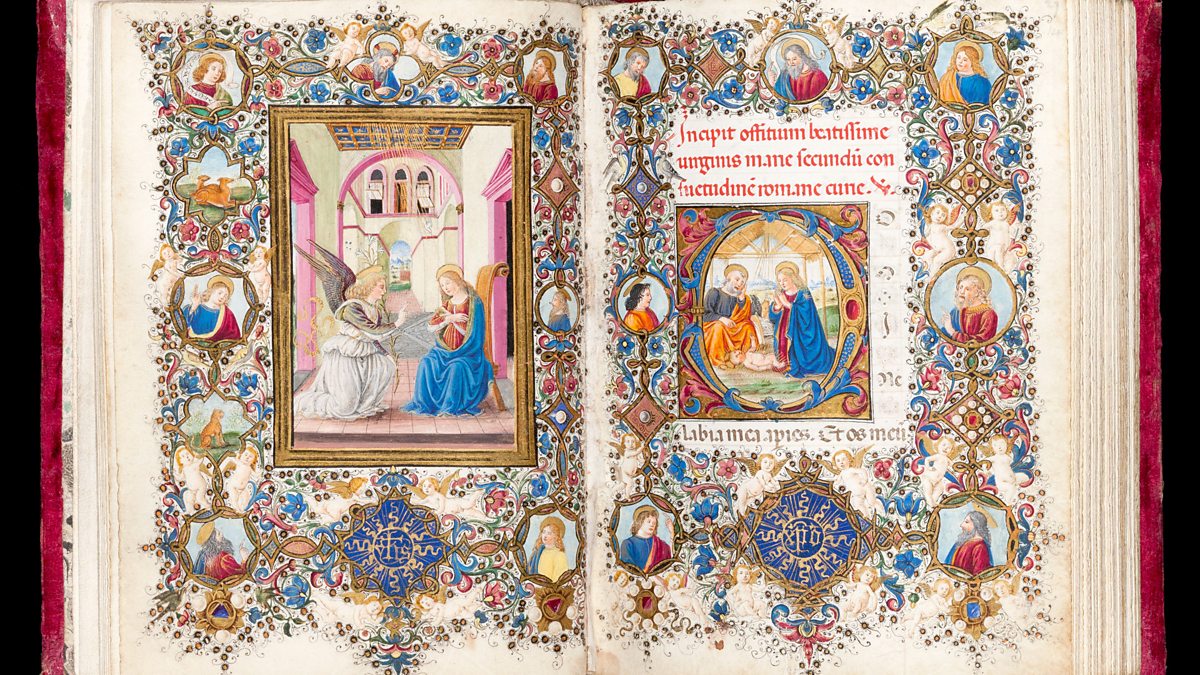 yhs
Incipit offitium beatissime
uirginis marie secundū con
suetudinē romane curie.
D
O
i
Ne
labia mea apies. Et os meū
xpo